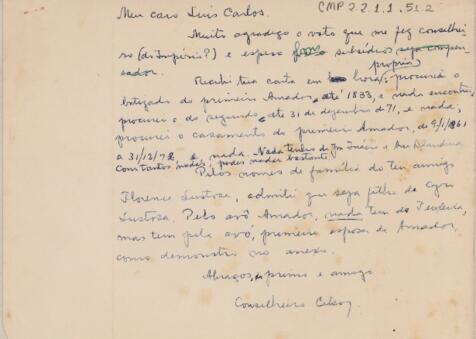 CMP 2.2.1.1.51.2
Meu caro Luis Carlos.
Muito agradeço o voto que me fez conselhei-
ro (do Império?) e espero subsídio seja compen-
sador.
Recebi tua carta em hora propria: procurei o
batizado do primeiro Amador, até 1833, e nada encontrei,
procurei o do segundo, até 31 de dezembro de 71, e nada,
procurei o casamento do primeiro Amador, de 9/1/861
a 31/12/72 e nada. Nada tenho de
mandar bastante.
Pelos nomes de família do teu amigo
Florence Lustosa, admiti que seja filho de
Lustosa. Pelo avô Amador, nada tem de Teixeira,
mas tem pela avó, primeira esposa de Amador,
como demonstro no anexo.
Abraços, do primo e amigo
Conselheiro Celso